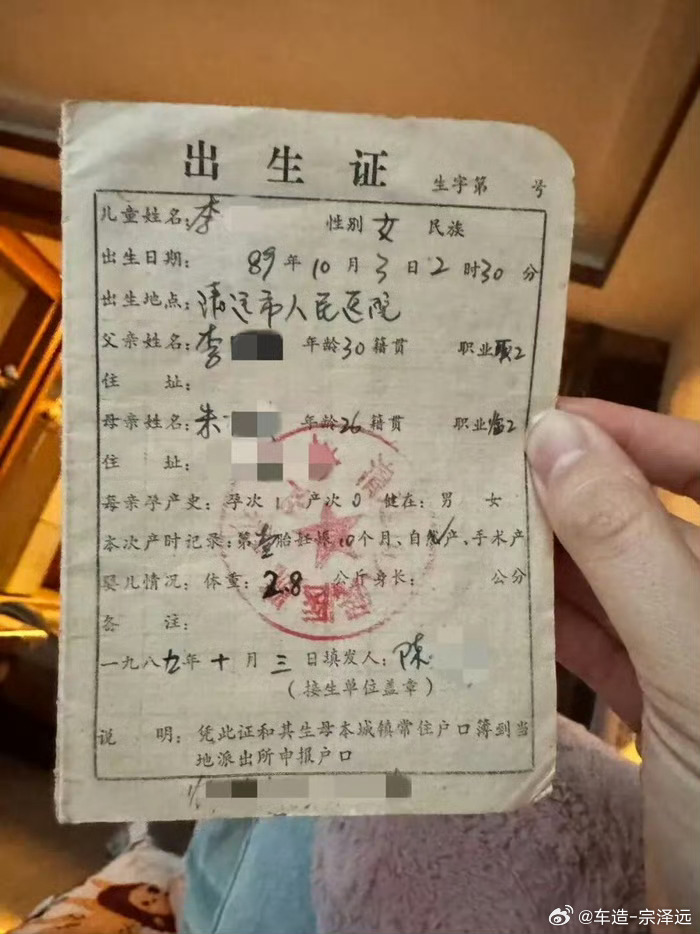 出生证
生字第 号
儿童姓名：李 性别 女 民族
出生日期： 89年10月3日2时30分
出生地点：清远市人民医院
父亲姓名：李 年龄30籍贯 职业职工
住 址：
母亲姓名：朱 年龄26籍贯 职业临工
住 址：
母亲孕产史：孕次1产次0健在：男 女
本次产时记录：第壹胎妊娠10个月、自然产、手术产
婴儿情况：体重：2.8公斤身长： 公分
备 注：
一九八九年十月三日填发人：陈
（接生单位盖章）
说 明：凭此证和其生母本城镇常住户口簿到当
地派出所申报户口
@车造-宗泽远